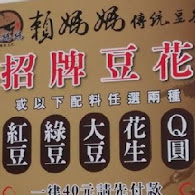 賴媽媽傳統豆
招牌豆花
或以下配料任選兩種
紅豆 綠豆 大豆 花生 Q圓
一律40元請先付款